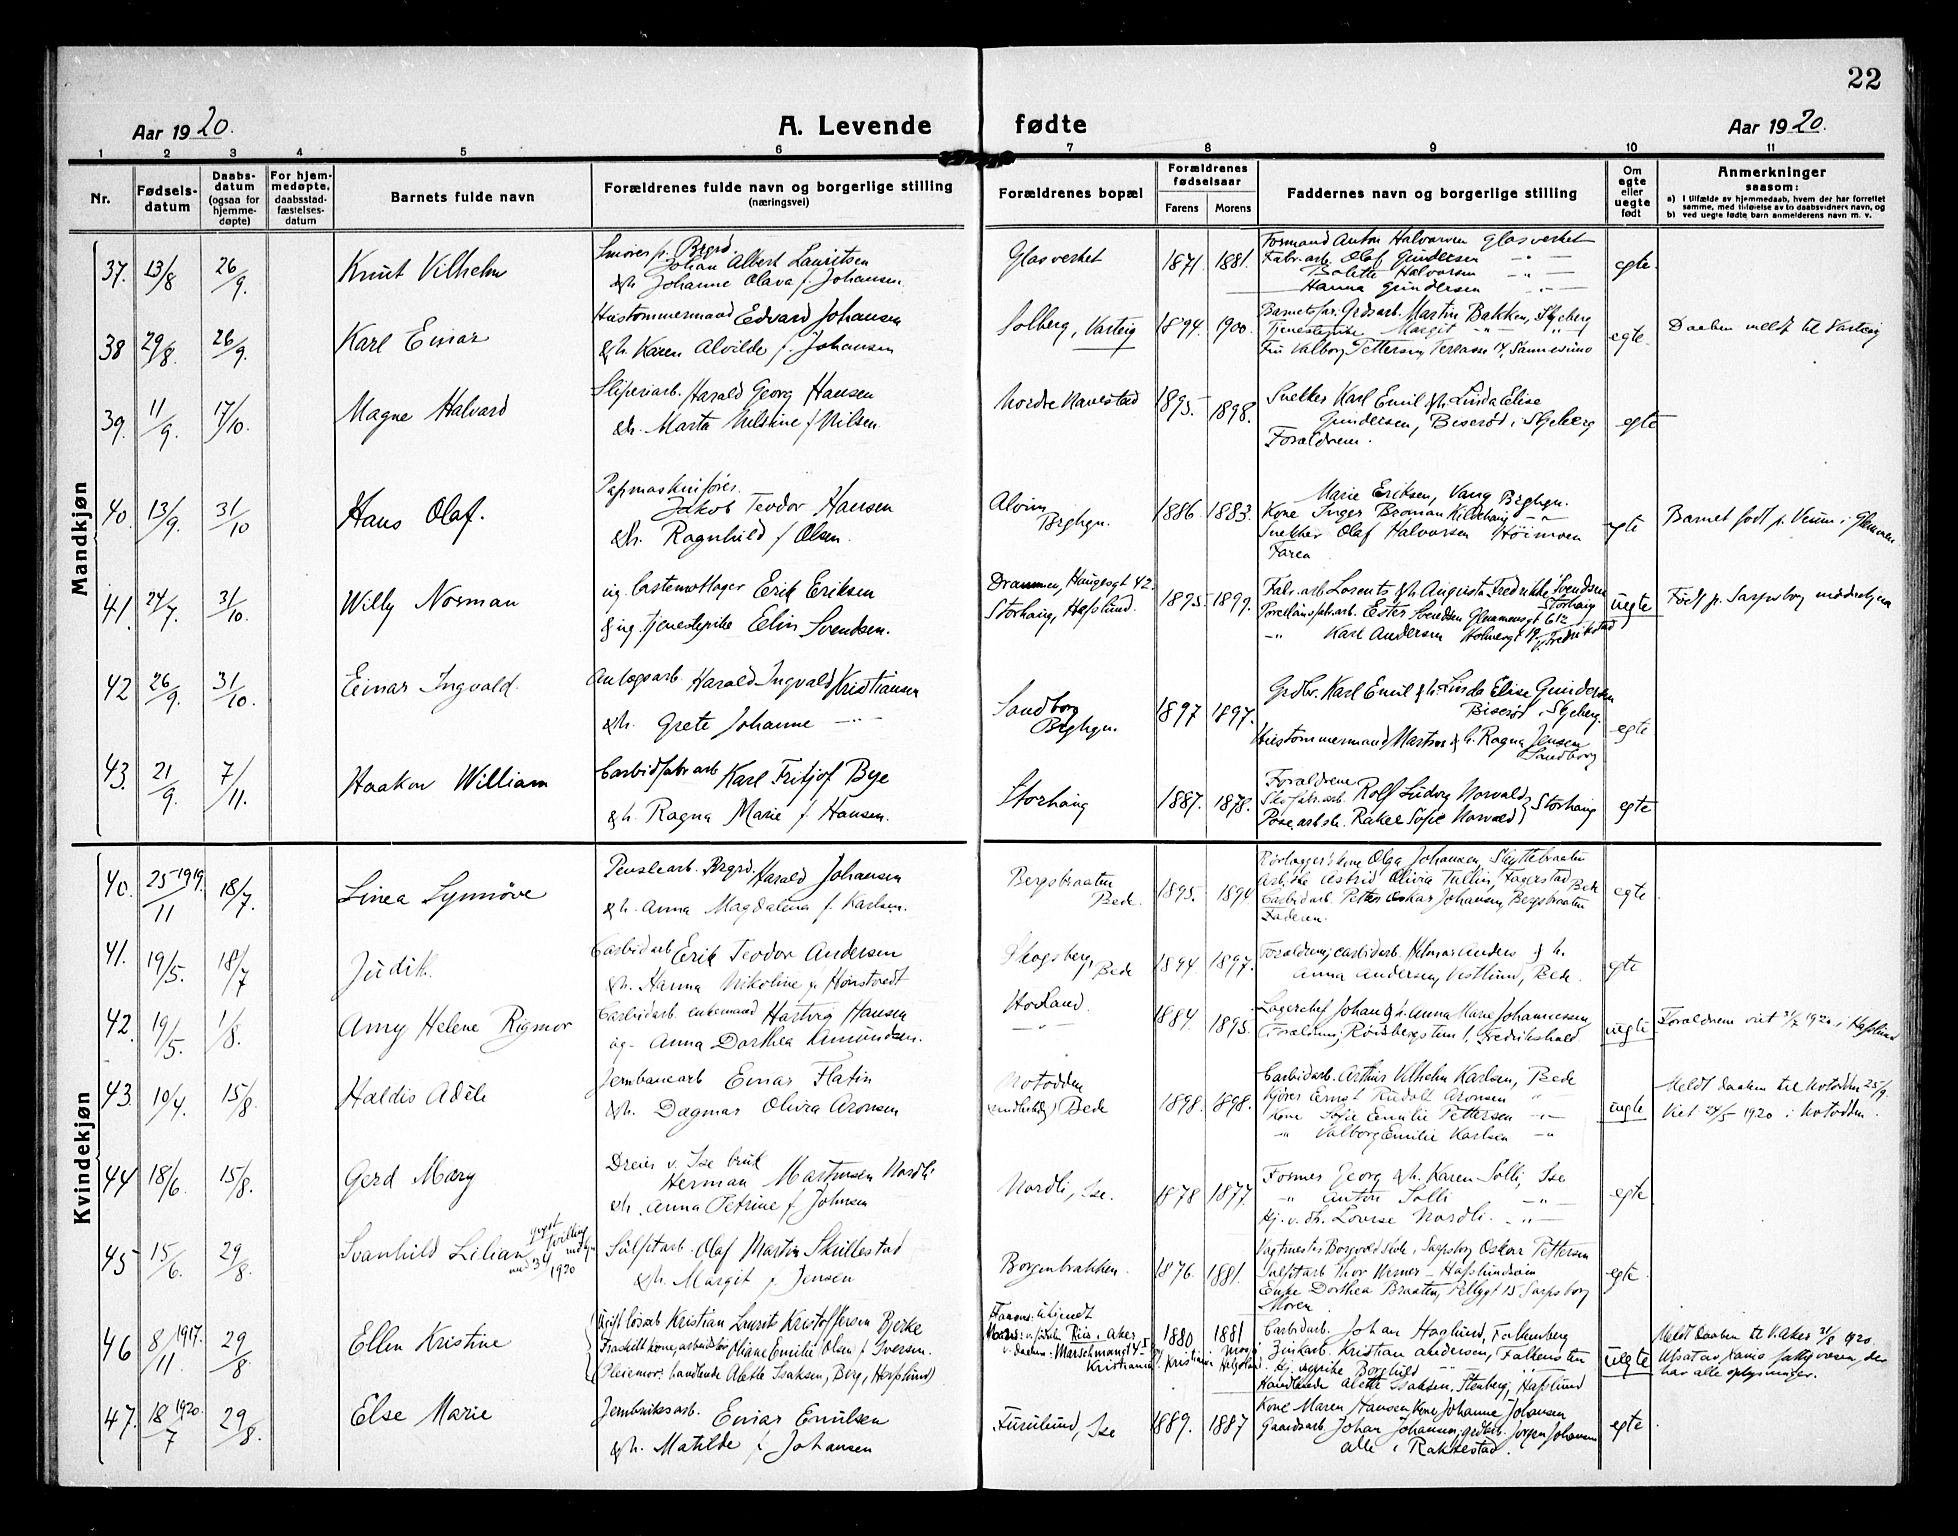 22
Aar 1920.
A. Levende fødte
Aar 1920.
1 2 3 4 5 6 7 8 9 10 11
Nr.
Fødsels-
datum
Daabs-
datum
(ogsaa for
hjemme-
døpte)
For hjem-
medøpte,
daabsstad-
fæstelses-
datum
Barnets fulde navn
Forældrenes fulde navn og borgerlige stilling
(næringsvei)
Forældrenes bopæl
Forældrenes
fødselsaar
Farens Morens
Faddernes navn og borgerlige stilling
Om
egte
eller
uegte
født
Anmerkninger
saasom:
a) I tilfælde av hjemmedaab, hvem der har forrettet
samme, med tilføielse av to daabsvidners navn, og
b) ved uegte fødte barn anmelderens navn m. v.
Mandkjøn
37. 13/8 26/9. Knut Vilhelm
Johan Albert Lauritsen
& h. Johanne Olava f. Johansen.
Glasverket 1871. 1881.
Formand Anton Halvorsen Glasverket
Fabr.arb. Olof Gundersen -"-
Bolette Halvorsen -"-
Hanna Gundersen -"-
egte.
38 29/8. 26/9. Karl Einar
Hustømmermand Edvard Johansen
& h. Karen Alvilde f. Johansen
Solberg, Varteig 1894. 1900.
Martin Bakken, Skjeberg
Margit -"- -"-
Fru Valborg Pettersen,
egte.
Daaben meldt til Varteig
39. 11/9. 17/10. Magne Halvard
Sliperiarb. Harald Georg Hansen
& h. Marta Nilsine f. Nilsen.
Nordre Navestad 1895. 1898.
Snekker Karl Emil & h. Linda Elise
Gundersen, Biserød i Skjeberg
Forældrene.
egte
40. 13/9. 31/10 Hans Olaf.
Papmaskinfører.
Jakob Teodor Hansen
& h. Ragnhild f. Olsen.
Alvim
Brghgn. 1886. 1883.
Marie Eriksen, Vang Brghgn.
Kone Inger Broman
Snekker Olaf Halvorsen Høimoen
Faren
egte
Barnet født p. Veum i Glemmen
41. 24/7. 31/10. Willy Norman
Erik Eriksen
& ug. tjenestepike Elin Svendsen.
Drammen, Haugesgt 42.
Storhaug, Hafslund. 1895 1899.
Fabr.arb. Lorents & h. Augusta Fredrikke Svendsen
Storhaug
Ester Svendsen Glemmensgt 612
-"- Karl Andersen
Fredrikstad
uegte
Født p. Sarpsborg mødrehjem
42 26/9. 31/10. Einar Ingvald.
Anlægsarb. Harald Ingvald Kristiansen
& h. Grete Johanne -"-
Sandborg
Brghgn. 1897 1897.
Grdbr. Karl Emil & h. Linda Elise Gundersen
Biserød i Skjeberg.
Hustømmermand Martin & h. Ragna Jensen
Sandborg
egte.
43. 21/9. 7/11. Haakon William
Carbidfabr.arb Karl Fritjof Bye
& h. Ragna Marie f. Hansen.
Storhaug 1887. 1878.
Forældrene
Skofabr.arb. Rolf Ludvig Norvald
Rakel Sofie Norvald } Storhaug
egte
Kvindekjøn
40. 25/11 1919. 18/7. Linea Synnøve
Harald Johansen
& h. Anna Magdalena f. Karlsen.
Bergsbraaten
Bede. 1895. 1894
Olga Johansen, Skyttebraaten
Astrid Olivia Tullin, Fagerstad Bede
Carbidarb. Petter Oskar Johansen, Bergsbraaten
Faderen.
egte
41. 19/5. 18/7 Judit.
Carbidarb. Erik Teodor Andersen
& h. Hanna Nikoline
Skogsberg,
Bede 1894. 1897.
Forældrene, carbidarb. Helmar Anders & h.
Anna Andersen, Vestlund, Bede.
egte
42. 19/5. 1/8. Amy Helene Rigmor
Carbidarb. enkemand Hartvig Hansen
ug. Anna Dorthea Amundsen.
Hovland
-"- 1884. 1895.
Lagerchef Johan & h. Anna Marie Johannessen,
Forældrene, Fredrikshald
uegte
Forældrene viet 31/7 1920 i Hafslund
43. 10/4. 15/8. Haldis Adéle
Jernbanearb Einar Flatin
& h. Dagmar Olivia Aronsen
Notodden
Bede 1898. 1898.
Carbidarb. Arthur Vilhelm Karlsen, Bede
Kjører Ernst Rudolf Aronsen "
Kone Sofie Emilie Pettersen -"-
" Valborg Emilie Karlsen -"-
uegte
Meldt daaben til Notodden 25/9.
Viet 24/5 1920 i Notodden.
44 18/6. 15/8. Gerd Mary
Dreier v. Ise bruk
Herman Martinsen Nordli
& h. Anna Petrine f. Johnsen
Nordli, Ise. 1878 1877.
Former Georg & h. Karen Solli, Ise
" Anton Solli -"-
Hj. v. dh. Lovise Nordli. -"-
egte.
45 15/6. 29/8. Svanhild Lilian
1920
Sulfitarb. Olaf Martin Skullestad
& h. Margit f. Jensen
Borgenbakken. 1876. 1881.
Vagtmester Borgvold Skole, Sarpsborg Oskar Pettersen
Sulfitarb Thor Werner - Hafslundsøin
Enke Dorthea Braaten, Sarpsborg
Moren
egte.
46 8/11 1917. 29/8 Ellen Kristine
Kristian Laurits Kristoffersen Bjerke
Fraskilt kone, Oliane Emilie Olsen f. Iversen.
(Pleiemor: handlende Alette Isaksen, Berg, Hafslund)
Farens: ubjendt
Riis i Aker
Marschmanngt
Kristiania 1880 1881
Carbidarb. Johan Haglund, Falkenberg
Zinkarb. Kristian Andersen, Falkensten
ug. pike Borghild
Handlende Alette Isaksen, Stenberg, Hafslund
uegte
Meldt daaben til V. Aker 31/8 1920.
har alle oplysninger.
47. 18/7 1920. 29/8. Else Marie
Jernbruksarb. Einar Emilsen
& h. Matilde f. Johansen
Furulund, Ise 1889. 1887
Kone Maren Hansen, Kone Johanne Johansen
Gaardsarb. Johan Johansen, grdbr. Jørgen Johansen
alle i Rakkestad.
egte